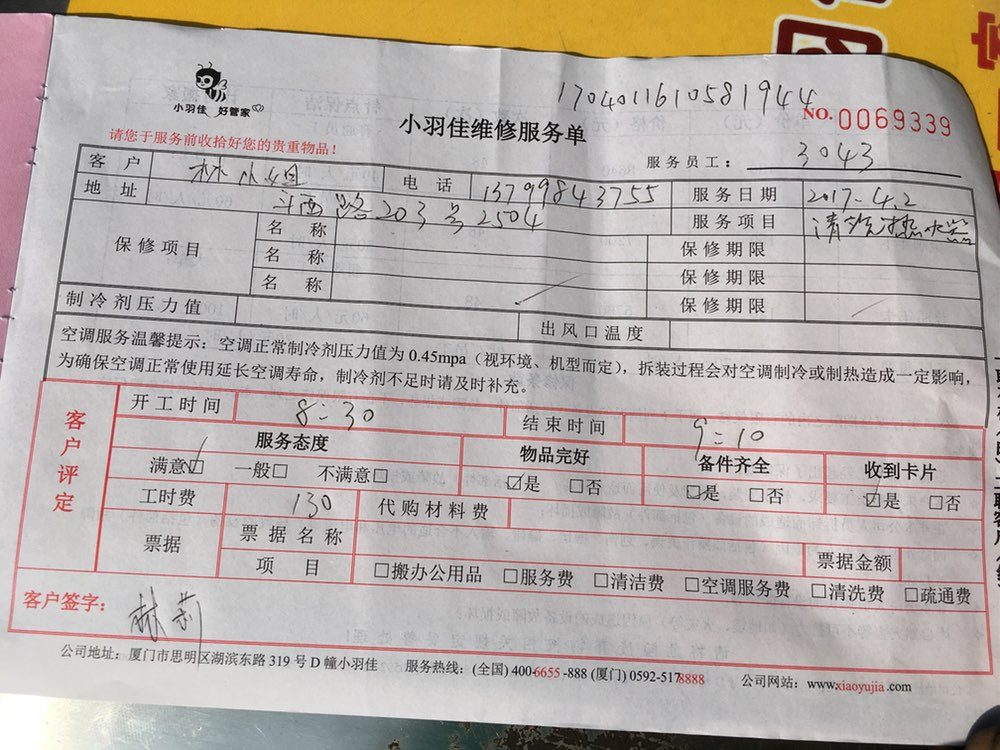 1704011610581944
小羽佳 好管家
小羽佳维修服务单
NO.0069339
请您于服务前收拾好您的贵重物品！
服务员工： 3043
客户 林小姐 电话 13799843755 服务日期 2017.4.2
地址 斗西路203号2504 服务项目 清洗热水器
保修项目 名称 保修期限
名称 保修期限
名称 保修期限
制冷剂压力值 出风口温度
空调服务温馨提示：空调正常制冷剂压力值为 0.45mpa（视环境、机型而定），拆装过程会对空调制冷或制热造成一定影响，
为确保空调正常使用延长空调寿命，制冷剂不足时请及时补充。
客户评定
开工时间 8:30 结束时间 9:10
服务态度 物品完好 备件齐全 收到卡片
满意☑ 一般□ 不满意□ ☑是 □否 ☑是 □否 ☑是 □否
工时费 130 代购材料费
票据 票据名称 票据金额
项目 □搬办公用品 □服务费 □清洁费 □空调服务费 □清洗费 □疏通费
客户签字： 林莉
公司地址：厦门市思明区湖滨东路 319 号 D 幢小羽佳 服务热线：(全国) 400-6655-888 (厦门) 0592-5178888 公司网站：www.xiaoyujia.com